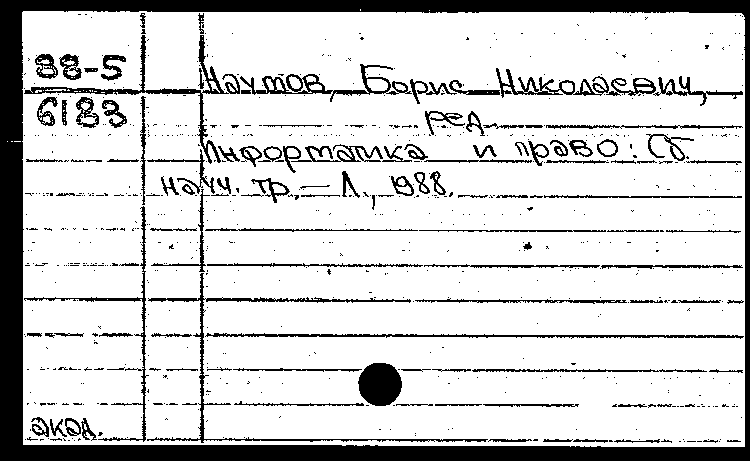 88-5
6183
Наумов, Борис Николаевич,
ред.
Информатика и право: Сб.
науч. тр. — Л., 1988.
экд.